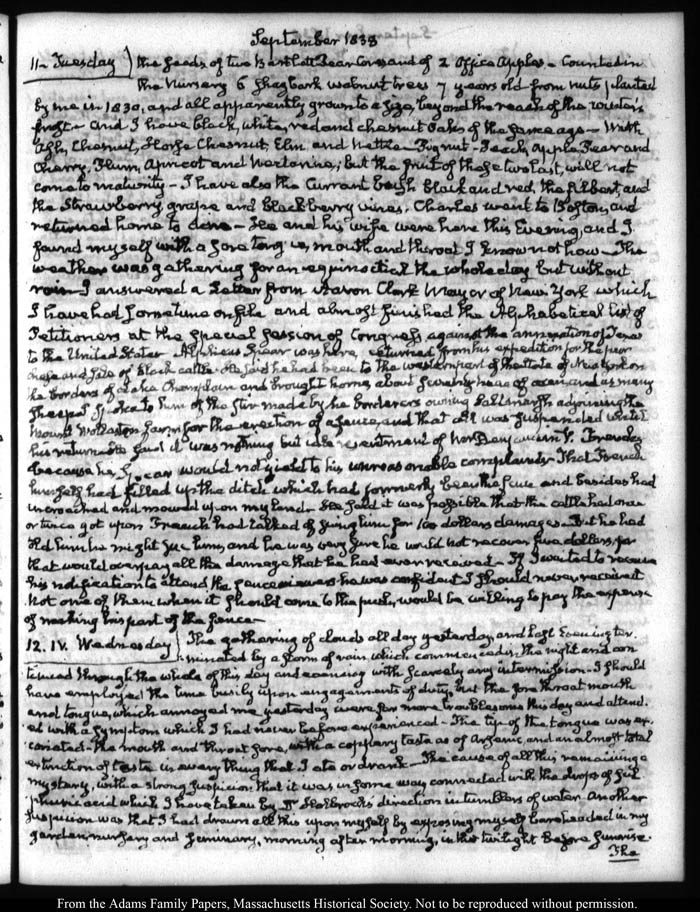 September 1838
11. Tuesday) the seeds of two Bartlett Pear Cores and of 2 Office Apples. Counted in
the Nursery 6 shagbark walnut trees 7 years old from nuts planted
by me in 1830, and all apparently grown to a size, beyond the reach of the winter's
frost. And I have black, white, red and chesnut Oaks of the same age — With
Ash, Chesnut, Horse Chesnut, Elm and Nettle — Pignut — Peach, Apple Pear and
Cherry, Plum, Apricot and Nectarine; but the fruit of these two last, will not
come to maturity — I have also the Currant both black and red, the filbert, and
the Strawberry, grape and blackberry vines. Charles went to Boston, and
returned home to dine — He and his wife were here this Evening, and I
found myself with a sore tongue, mouth and throat I know not how — The
weather was gathering for an equinoctial the whole day but without
rain — I answered a Letter from Aaron Clark Mayor of New York which
I have had sometime on file and almost finished the Alphabetical list of
Petitioners at the special Session of Congress against the annexation of Texas
to the United States. Alpheus Spear was here, returned from his expedition for the purchase
and sale of Stock cattle. He said he had been to the western part of the State of New York on
the borders of Lake Champlain and brought home about seventy head of oxen and as many
sheep. I spoke to him of the stir made by the borderers owning Salt marsh adjoining the
Mount Wollaston farm for the erection of a fence, and that all was suspended until
his return. He said it was nothing but idle resentment of Benjamin
because he Spear would not yield to his unreasonable complaints — That French
himself had filled up the ditch which had formerly been the fence and besides had
incroached and mowed upon my land. He said it was possible that the cattle had once
or twice got upon French had talked of suing him for 100 dollars damages. But he had
told him he might sue him, and he was very sure he would not recover five dollars, for
that would overpay all the damage that he had ever received — If I waited to receive
his notification to attend the fence viewers he was confident I should never receive it
Not one of them when it should come to the push, would be willing to pay the expense
of making his part of the fence —
12. IV. Wednesday) The gathering of clouds all day yesterday, and last Evening ter-
minated by a storm of rain which commenced in the night and con-
tinued through the whole of this day and evening with scarcely any intermission. I should
have employed the time busily upon engagements of duty, but the sore throat mouth
and tongue, which annoyed me yesterday were far more troublesome this day and attend-
ed with a symptom which I had never before experienced — The tip of the tongue was ex-
coriated — the mouth and throat sore, with a coppery taste as of Arsenic, and an almost total
extinction of taste in every thing that I ate or drank — The cause of all this remaining a
mystery, with a strong suspicion that it was in some way connected with the drops of sul-
phuric acid which I have taken by Dr Holbrook's direction in tumblers of water. Another
suspicion was that I had drawn all this upon myself by exposing myself bareheaded in my
garden, nursery and seminary, morning after morning, in the twilight before sunrise.
The
From the Adams Family Papers, Massachusetts Historical Society. Not to be reproduced without permission.